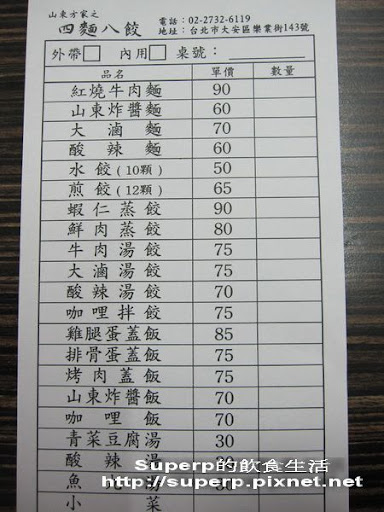 山東方家之
四麵八餃
電話：02-2732-6119
地址：台北市大安區樂業街143號
外帶 內用 桌號：
品名 單價 數量
紅燒牛肉麵 90
山東炸醬麵 60
大滷麵 70
酸辣麵 60
水餃(10顆) 50
煎餃(12顆) 65
蝦仁蒸餃 90
鮮肉蒸餃 80
牛肉湯餃 75
大滷湯餃 75
酸辣湯餃 70
咖哩拌餃 75
雞腿蛋蓋飯 85
排骨蛋蓋飯 75
烤肉蓋飯 75
山東炸醬飯 70
咖哩飯 70
青菜豆腐湯 30
酸辣湯 30
魚 湯
小菜
Superp的飲食生活
http://superp.pixnet.net